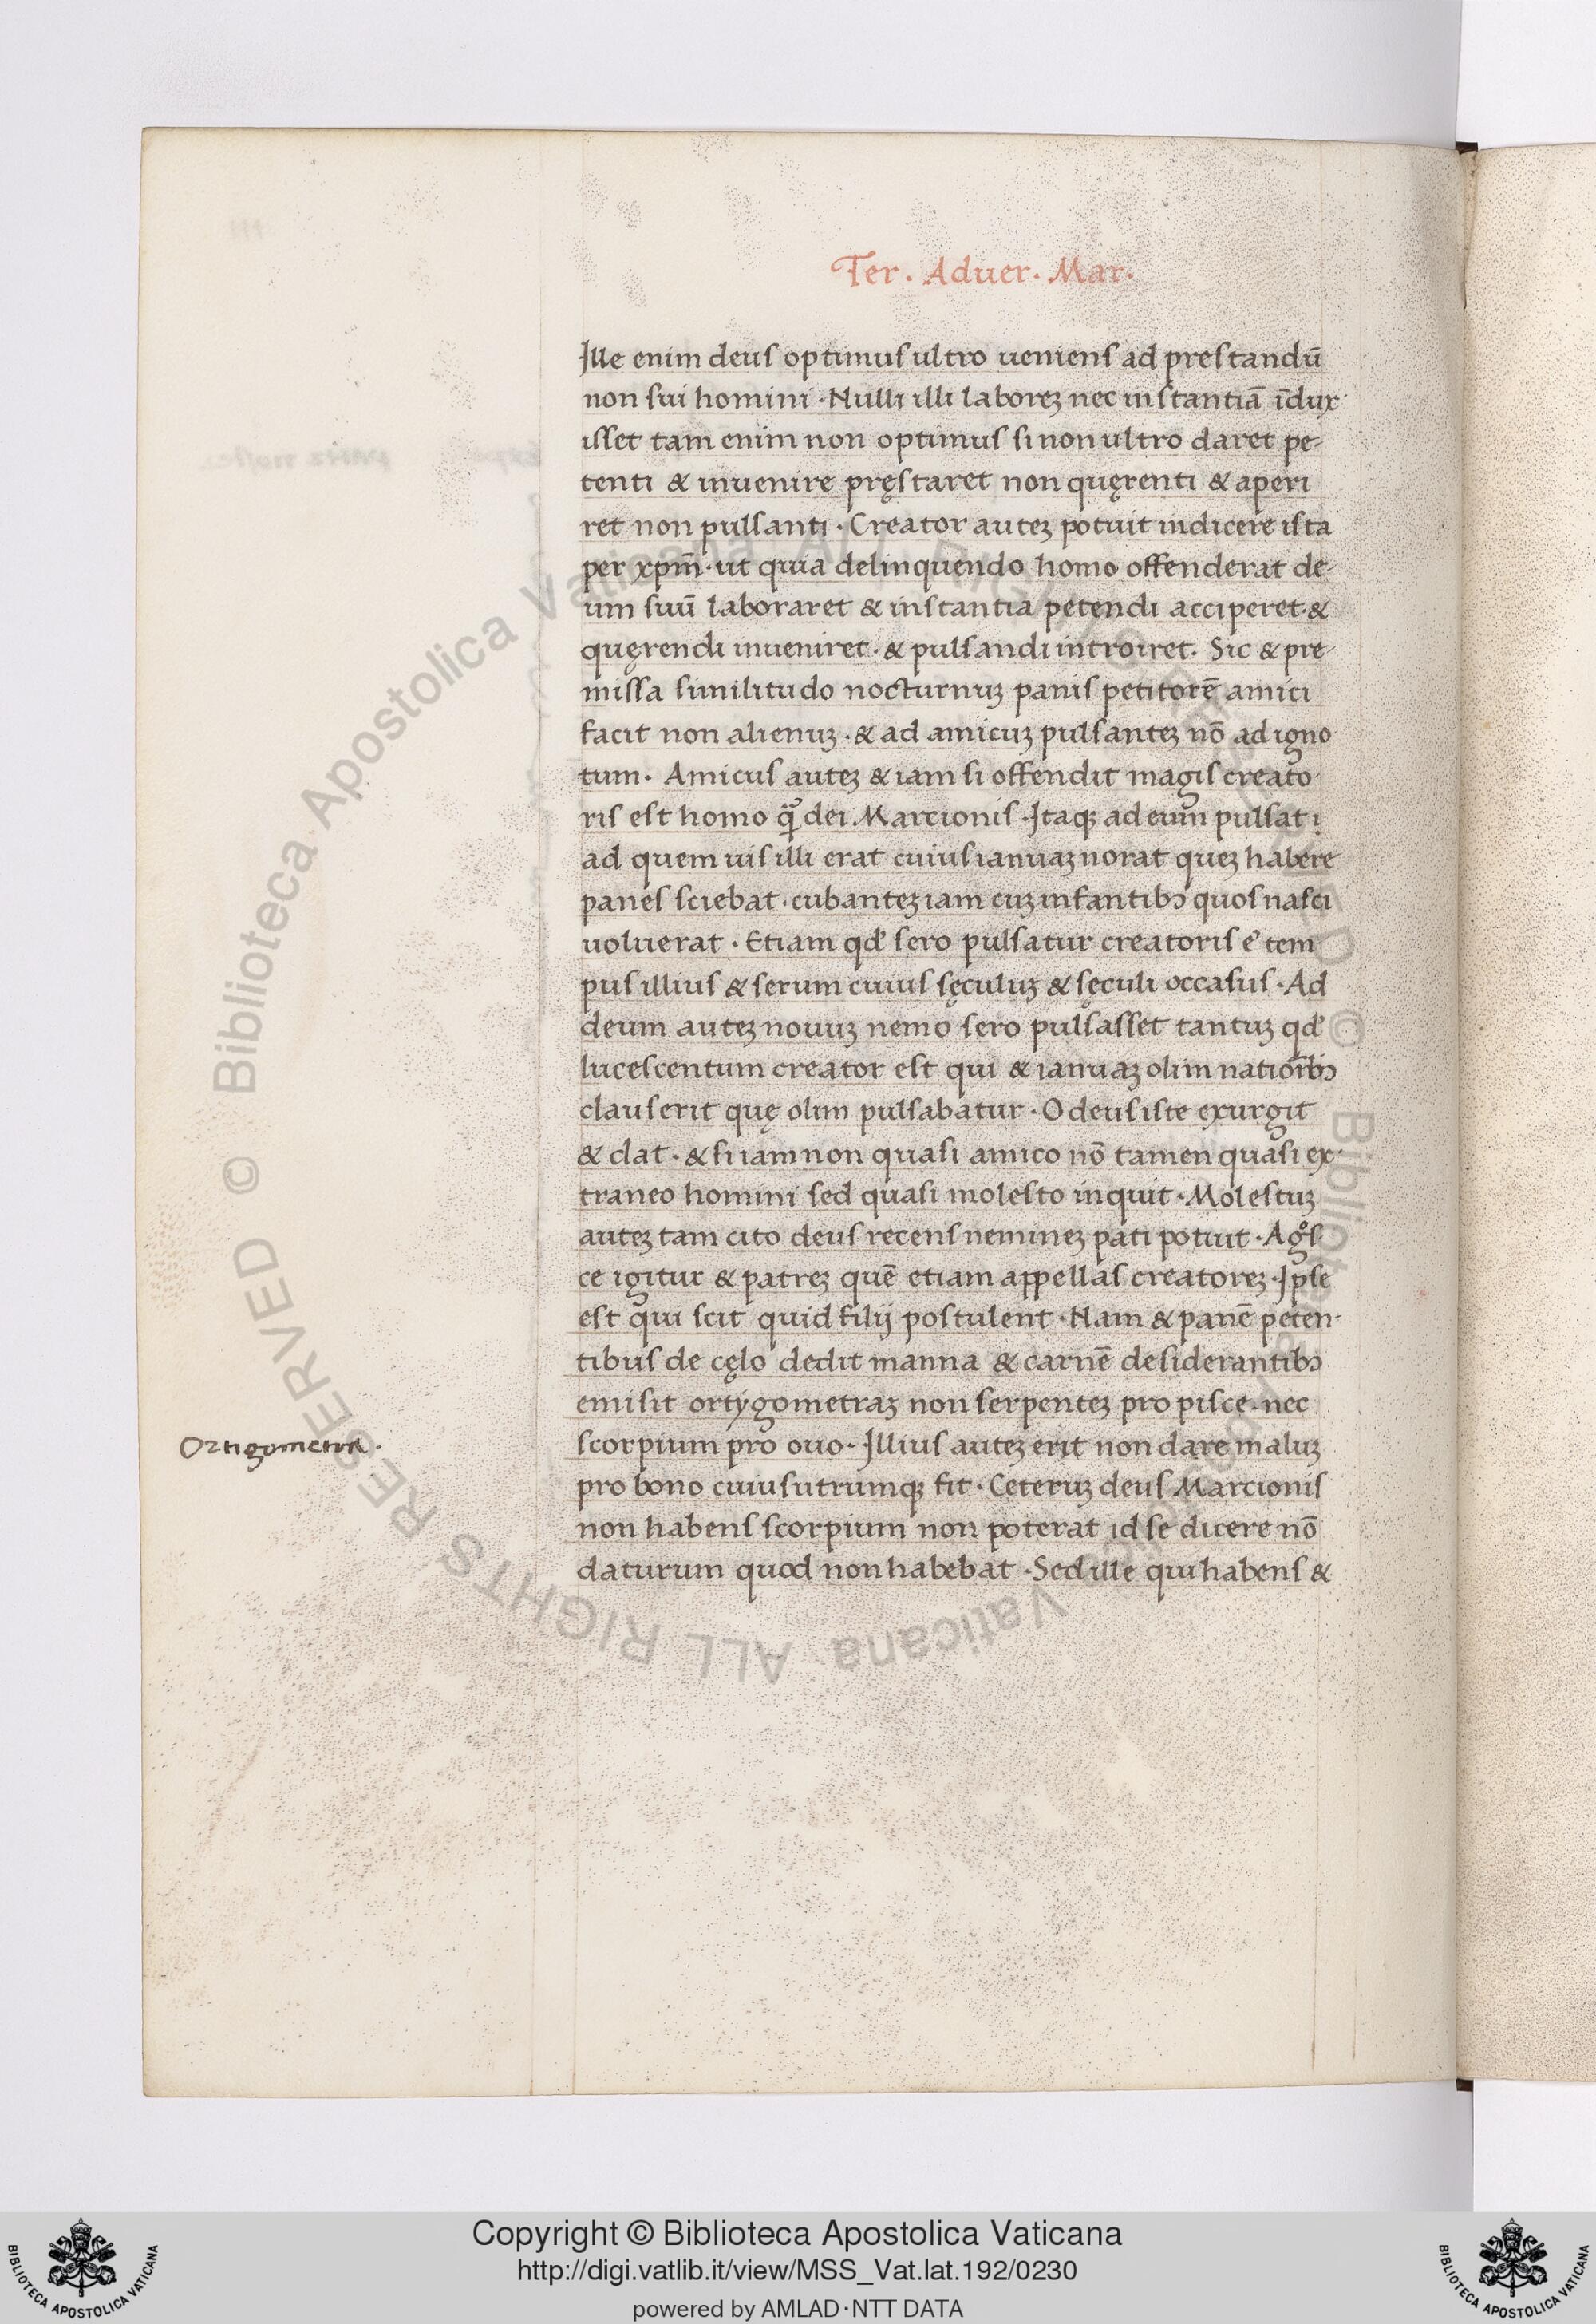 Ter. Aduer. Mar.
Ille enim deus optimus ultro ueniens ad prestandū
non sui homini · Nulli illi laboreꝫ nec instantiā īdux
isset tam enim non optimus si non ultro daret pe-
tenti & inuenire pręstaret non quęrenti & aperi
ret non pulsanti · Creator auteꝫ potuit indicere ista
per xpm̄ · ut quia delinquendo homo offenderat de-
um suū laboraret & instantia petendi acciperet · &
quęrendi inueniret · & pulsandi introiret. Sic & pre-
missa similitudo nocturnuꝫ panis petitorē amici
facit non alienuꝫ · & ad amicuꝫ pulsanteꝫ nō ad igno
tum · Amicus auteꝫ & iam si offendit magis creato-
ris est homo qͣꝫ dei Marcionis · Itaqꝫ ad eum pulsat ị
ad quem uis illi erat cuius ianuaꝫ norat queꝫ habere
panes sciebat · cubanteꝫ iam cuꝫ infantibꝰ quos nasci
uoluerat · Etiam qd' sero pulsatur creatoris e' tem
pus illius & serum cuius sęculuꝫ & sęculi occasus · Ad
deum auteꝫ nouuꝫ nemo sero pulsasset tantuꝫ qd'
lucescentum creator est qui & ianuaꝫ olim natiōibꝰ
clauserit quę olim pulsabatur · O deus iste exurgit
& dat · & si iam non quasi amico nō tamen quasi ex-
traneo homini sed quasi molesto inquit · Molestuꝫ
auteꝫ tam cito deus recens nemineꝫ pati potuit · Agͦs
ce igitur & patreꝫ quē etiam appellas creatoreꝫ · Ipse
est qui scit quid filij postulent · Nam & panē peten-
tibus de cęlo dedit manna & carnē desiderantibꝰ
emisit ortygometraꝫ non serpenteꝫ pro pisce · nec
Ortigometra.
scorpium pro ouo · Illius auteꝫ erit non dare maluꝫ
pro bono cuius utrumqꝫ fit · Ceteruꝫ deus Marcionis
non habens scorpium non poterat id se dicere nō
daturum quod non habebat · Sed ille qui habens &
Copyright © Biblioteca Apostolica Vaticana
http://digi.vatlib.it/view/MSS_Vat.lat.192/0230
powered by AMLAD·NTT DATA
BIBLIOTECA APOSTOLICA VATICANA
BIBLIOTECA APOSTOLICA VATICANA
© Biblioteca Apostolica Vaticana ALL RIGHTS RESERVED
© Biblioteca Apostolica Vaticana ALL RIGHTS RESERVED